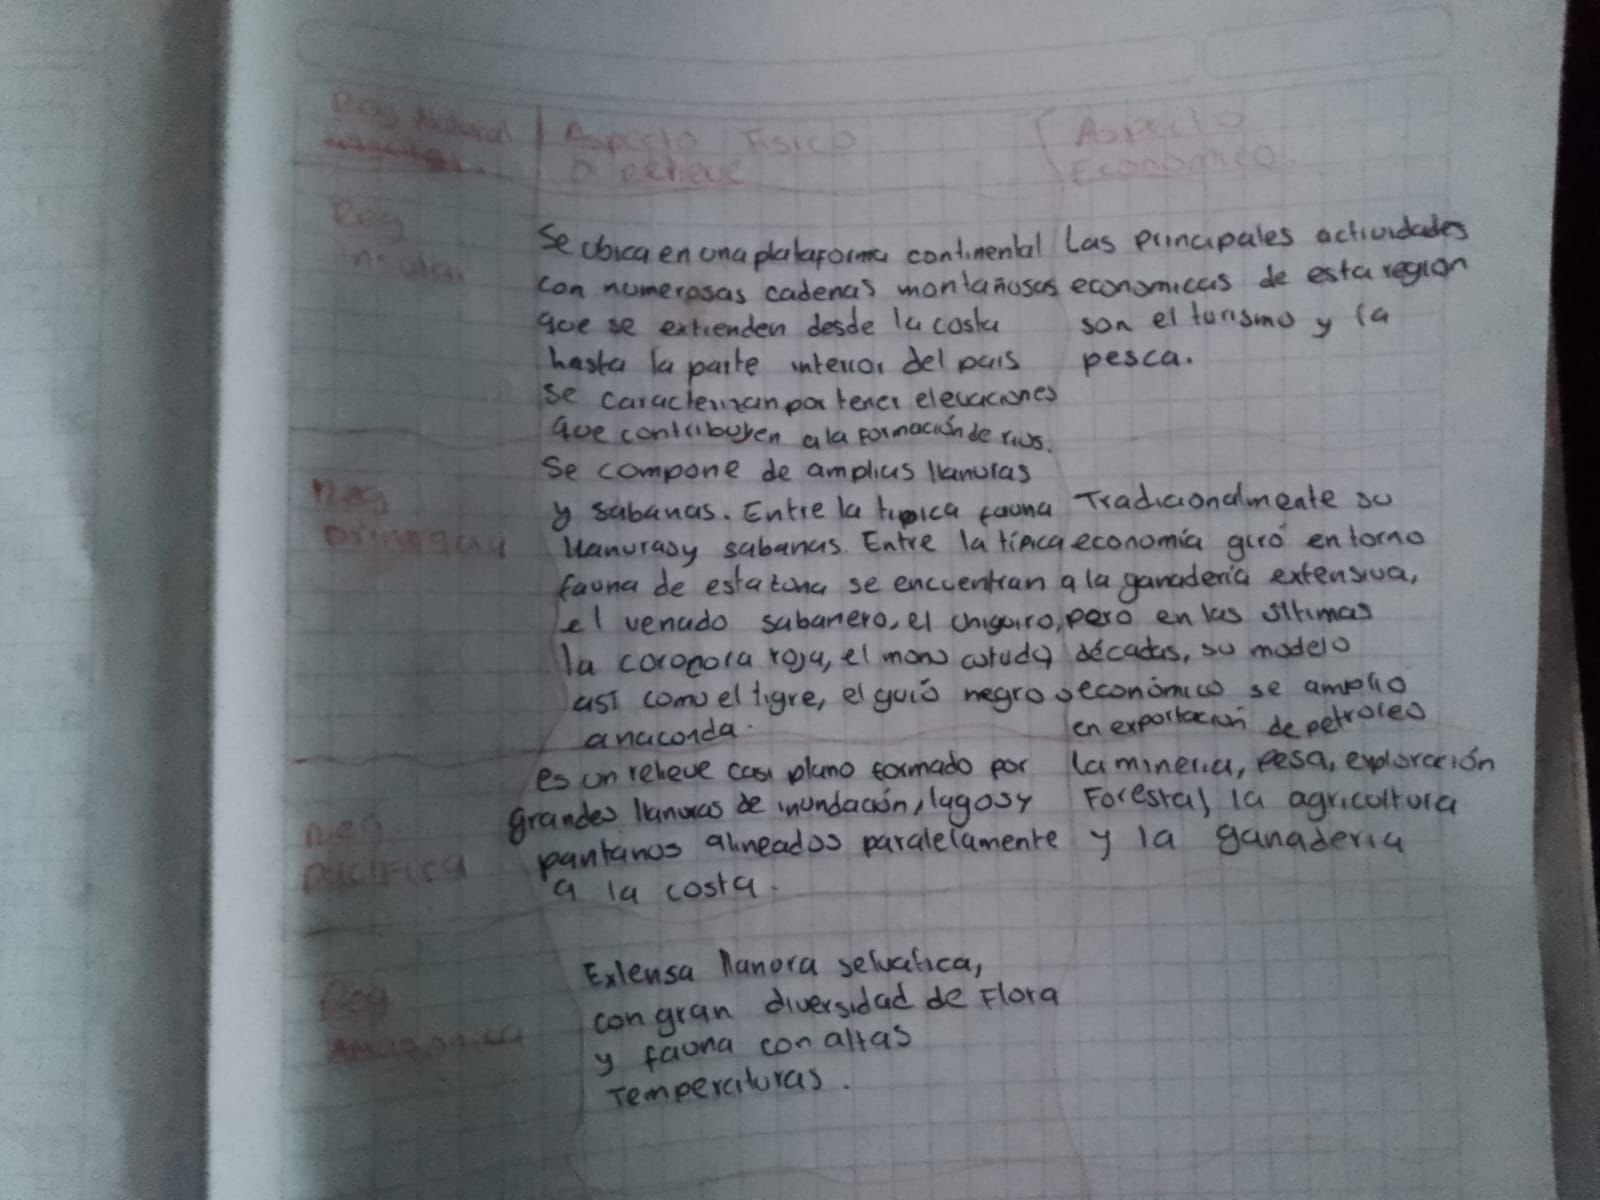 Reg Natural | Aspecto Fisico { Aspecto
o relieve Economico.
Reg
insular
Se ubica en una plataforma continental Las principales actividades
con numerosas cadenas montañosas economicas de esta region
que se extienden desde la costa son el turismo y la
hasta la parte interior del pais pesca.
se caracterizan por tener elevaciones
que contribuyen a la formación de rios.
Se compone de amplias llanuras
Reg
y sabanas. Entre la tipica fauna Tradicionalmente su
llanuras y sabanas. Entre la típica economía giró en torno
fauna de esta zona se encuentran a la ganadería extensiva,
el venado sabanero, el chiguiro, pero en las últimas
la corocora roja, el mono cotudo, décadas, su modelo
así como el tigre, el guió negro o económico se amplio
anaconda. en exportación de petroleo
es un relieve casi plano formado por la mineria, pesa, exploración
grandes llanuras de inundación, lagos y Forestal, la agricultura
Reg
Pacifica
pantanos alineados paralelamente y la ganaderia
a la costa.
Reg
Amazonica
Extensa llanora selvatica,
con gran diversidad de Flora
y fauna con altas
Temperaturas.